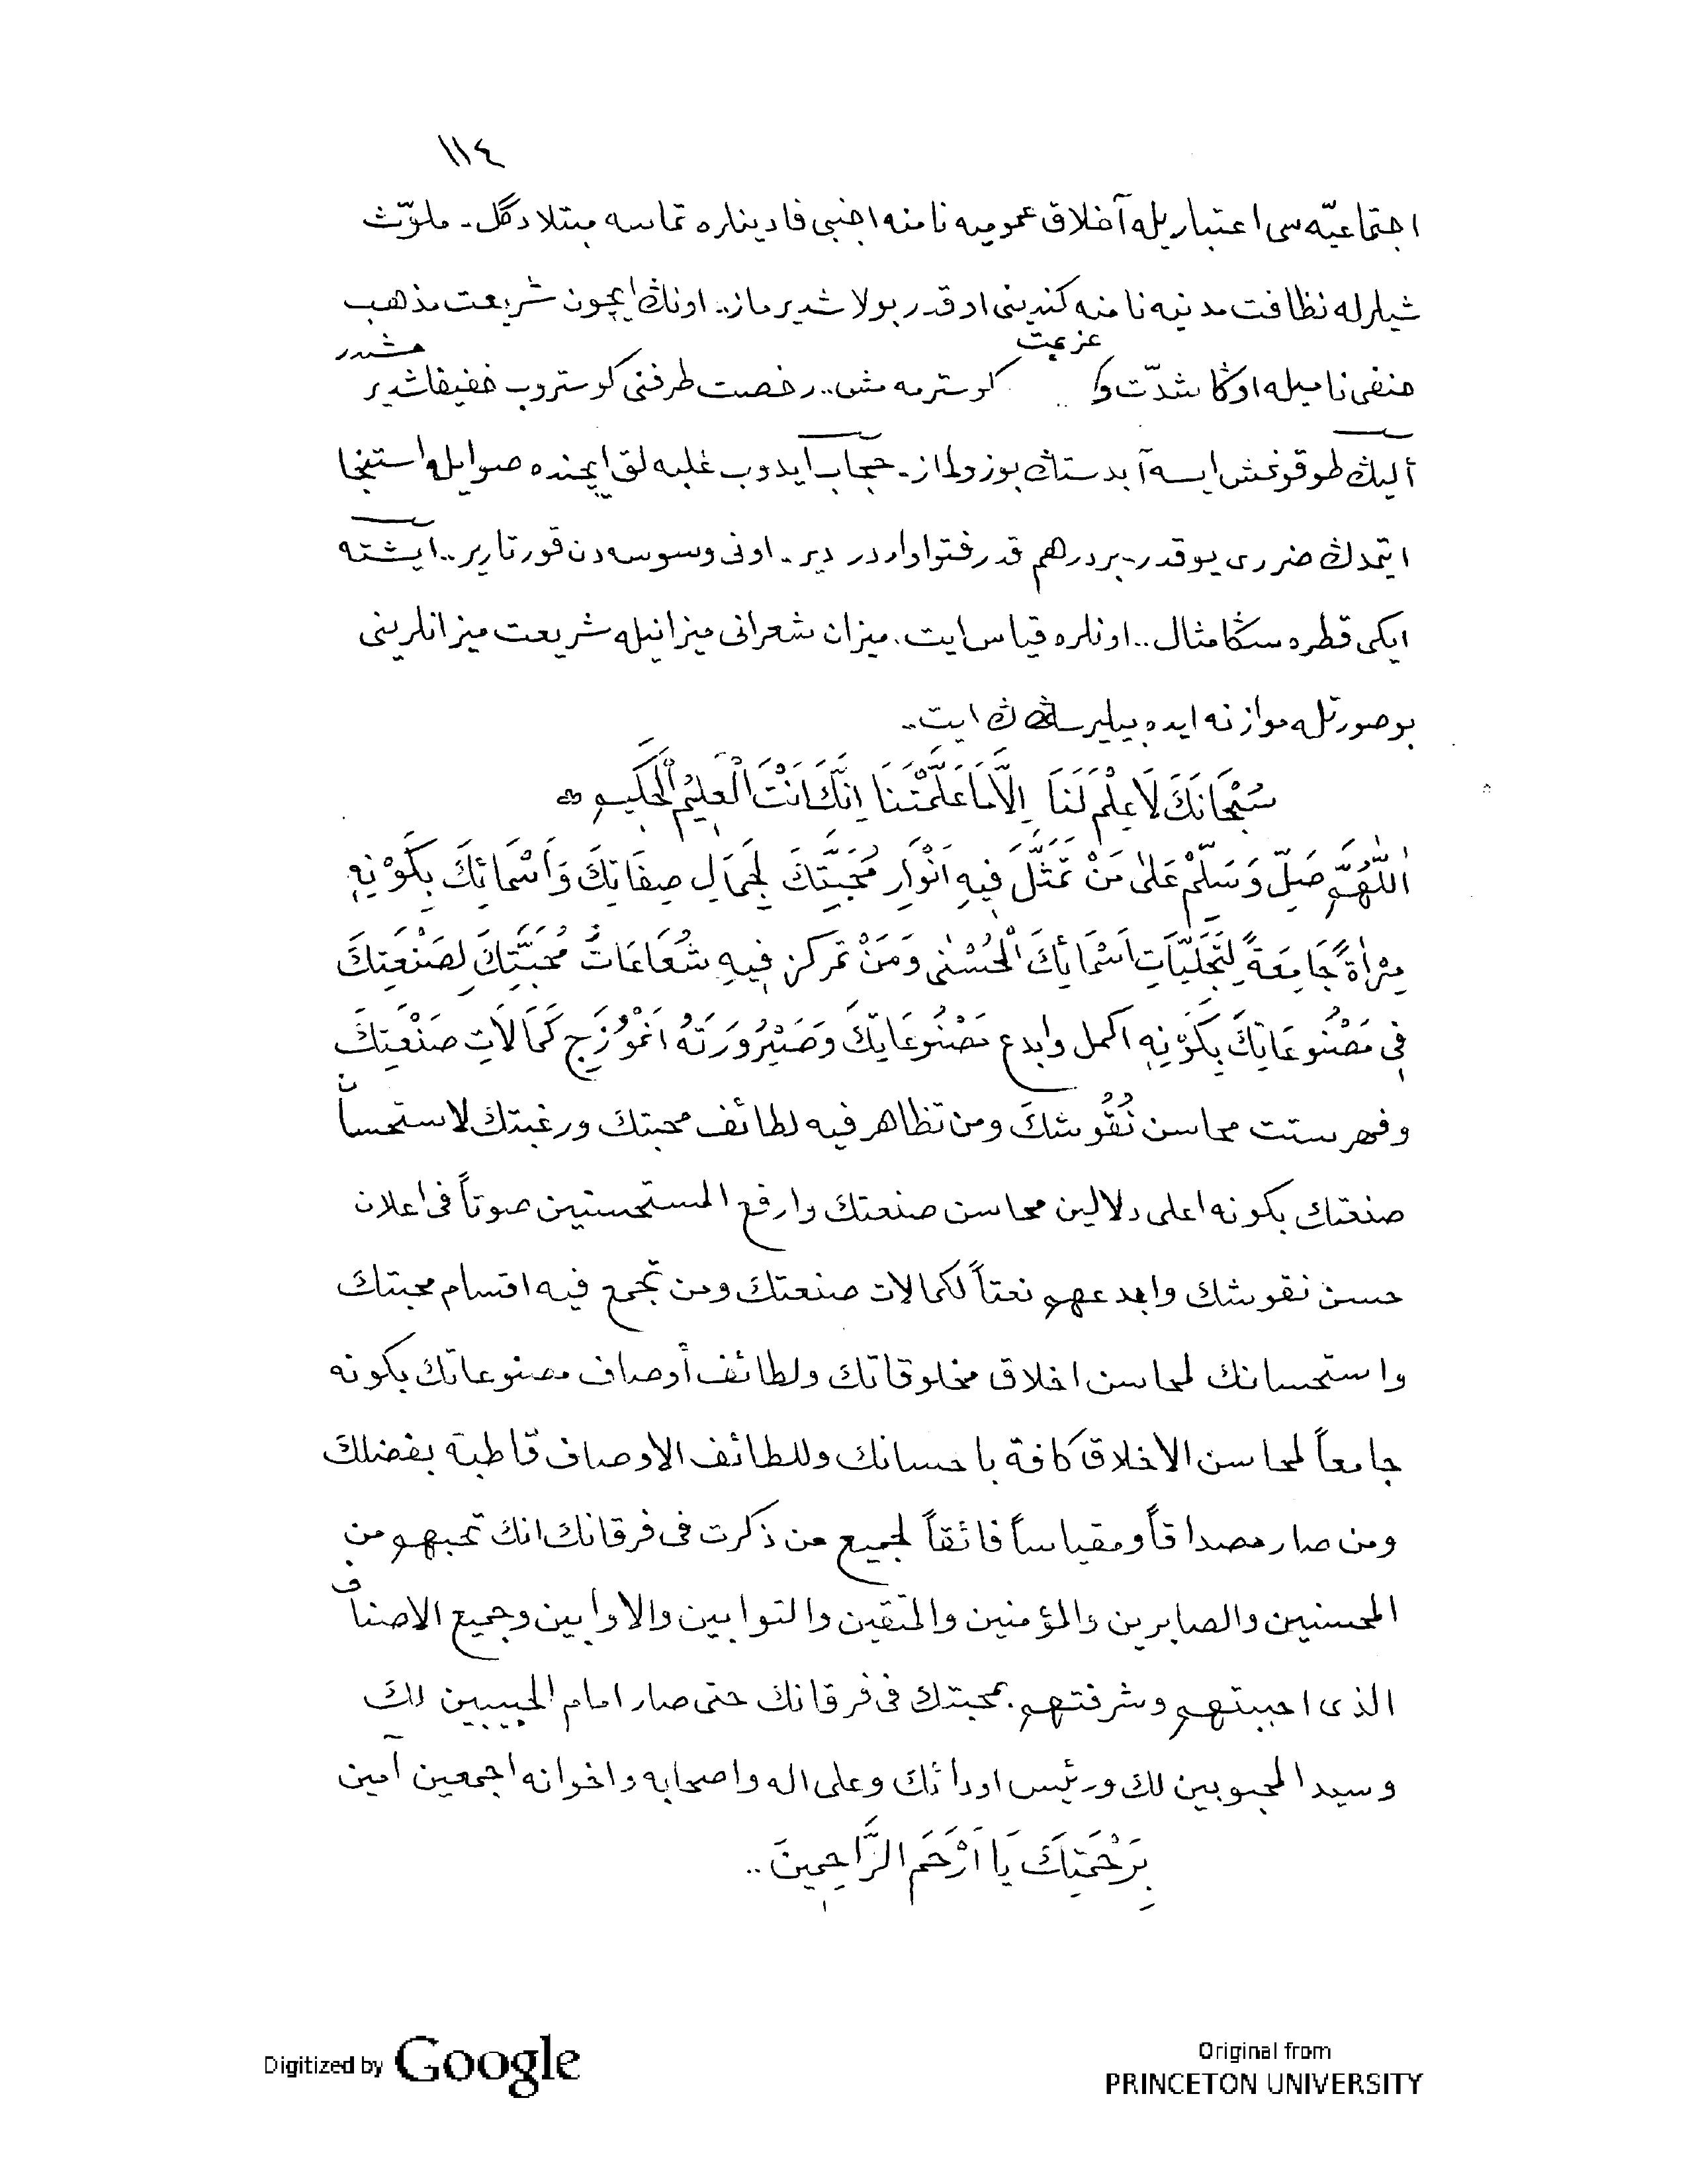 ١١٤
اجتماعيّه سى اعتباريله آخلاق عموميه نامنه اجنبى قادينلره تماسه مبتلا دگل. ملوّث
شيلرله نظافت مدنيه نامنه كندينى او قدر بولاشديرماز.. اونڭ ايچون شريعت مذهب
حنفى ناميله اوڭا شدّت و عزيمت گوسترمه مش.. رخصت طرفنى گوستروب خفيفلشديرمشدر
أليڭ طوقونمش ايسه آبدستڭ بوزولماز. حجاب ايدوب غلبه لق ايچنده صو ايله استنجا
ايتمدڭ ضررى يوقدر. بر درهم قدر فتوا واردر دير. اونى وسوسه دن قورتارير.. ايشته
ايكى قطره سڭا مثال.. اونلره قياس ايت. ميزان شعرانى ميزانيله شريعت ميزانلرينى
بو صورتله موازنه ايده بيليرسڭ ايت..
سُبْحَانَكَ لَا عِلْمَ لَنَا اِلَّا مَا عَلَّمْتَنَا اِنَّكَ اَنْتَ الْعَلِيمُ الْحَكِيمِ
اَللّٰهُمَّ صَلِّ وَسَلِّمْ عَلٰى مَنْ تَمَثَّلَ فِيهِ اَنْوَارِ مُحَبَّتِكَ لِجَمَالِ صِفَاتِكَ وَاَسْمَائِكَ بِكَوْنِهِ
مِرْاٰةً جَامِعَةً لِتَجَلِّيَاتِ اَسْمَائِكَ الْحُسْنٰى وَمَنْ تمركز فِيهِ شُعَاعَاتُ مُحَبَّتِكَ لِصَنْعَتِكَ
فِى مَصْنُوعَاتِكَ بِكَوْنِهِ اكمل وابدع مَصْنُوعَاتِكَ وَصَيْرُورَتَهُ اَنْمُوزَجِ كَمَالَاتِ صَنْعَتِكَ
وفهرستت محاسن نُقُوشكَ ومن تظاهر فيه لطائف محبتك ورغبتك لاستحسان
صنعتك بكونه اعلى دلالين محاسن صنعتك وارفع المستحسنين صوتاً فى اعلان
حسن نقوشك وابدعهم نعتاً لكمالات صنعتك ومن تجمع فيه اقسام محبتك
واستحسانك لمحاسن اخلاق مخلوقاتك ولطائف أوصاف مصنوعاتك بكونه
جامعاً لمحاسن الاخلاق كافة باحسانك وللطائف الاوصاف قاطبة بفضلك
ومن صار مصداقاً ومقياساً فائقاً لجميع من ذكرت فى فرقانك انك تحبهم من
المحسنين والصابرين والمؤمنين والمتقين والتوابين والاوابين وجميع الاصناف
الذى احببتهم وشرفتهم بمحبتك فى فرقانك حتى صار امام الحبيبين لك
وسيد المحبوبين لك ورئيس اودائك وعلى اله واصحابه واخوانه اجمعين آمين
بِرَحْمَتِكَ يَا اَرْحَمَ الرَّاحِمِينَ ..
Digitized by Google
Original from
PRINCETON UNIVERSITY